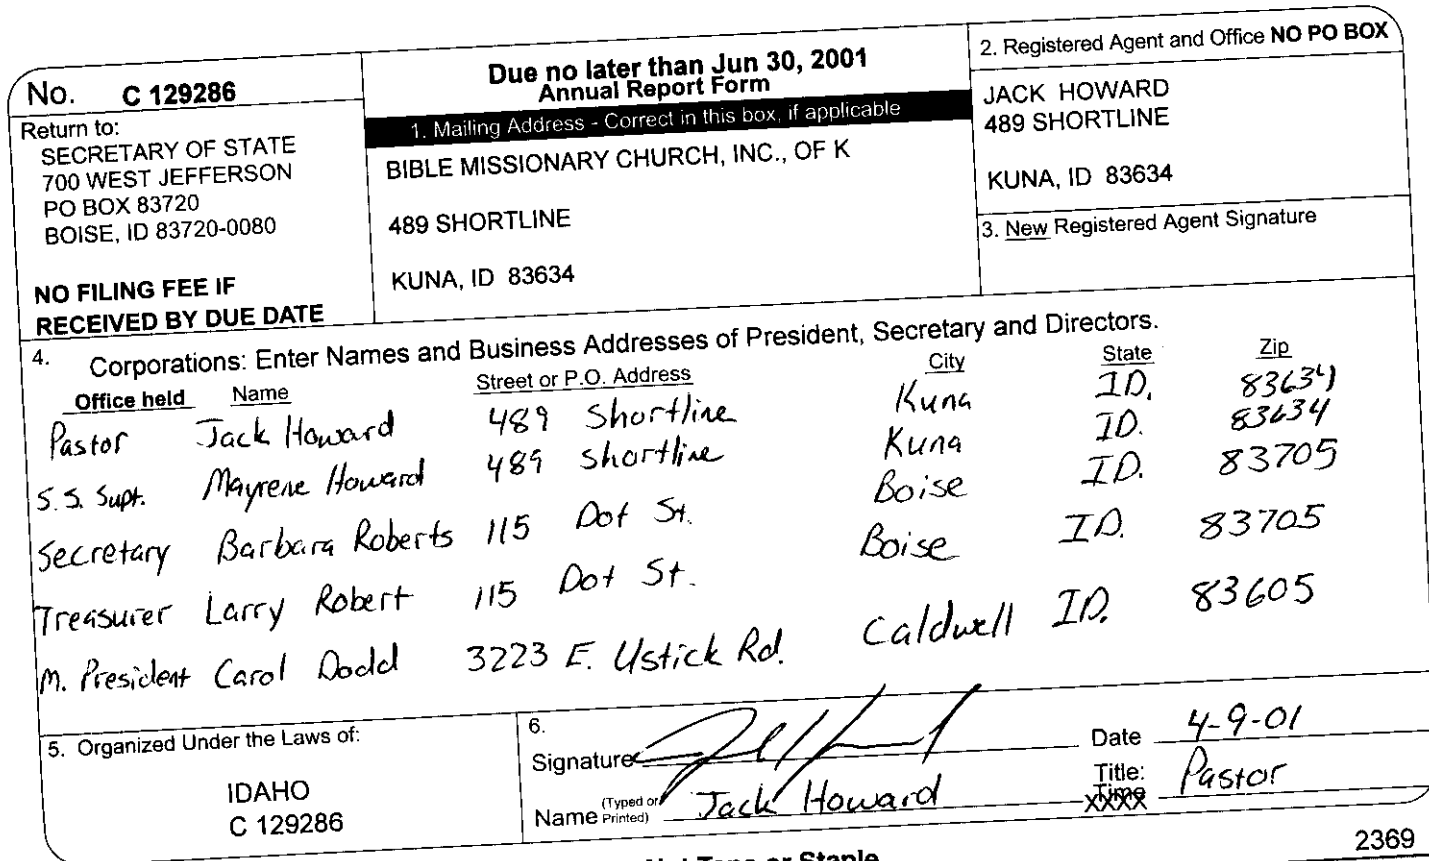 No. C 129286
Return to:
SECRETARY OF STATE
700 WEST JEFFERSON
PO BOX 83720
BOISE, ID 83720-0080
NO FILING FEE IF
RECEIVED BY DUE DATE
Due no later than Jun 30, 2001
Annual Report Form
1. Mailing Address - Correct in this box, if applicable
BIBLE MISSIONARY CHURCH, INC., OF K
489 SHORTLINE
KUNA, ID 83634
2. Registered Agent and Office NO PO BOX
JACK HOWARD
489 SHORTLINE
KUNA, ID 83634
3. New Registered Agent Signature
4. Corporations: Enter Names and Business Addresses of President, Secretary and Directors.
Office held Name Street or P.O. Address City State Zip
Pastor Jack Howard 489 Shortline Kuna ID. 83634
S.S. Supt. Mayrene Howard 489 Shortline Kuna ID. 83634
Secretary Barbara Roberts 115 Dot St. Boise ID. 83705
Treasurer Larry Robert 115 Dot St. Boise ID. 83705
M. President Carol Dodd 3223 E. Ustick Rd. Caldwell ID. 83605
5. Organized Under the Laws of:
IDAHO
C 129286
6.
Signature
Date 4-9-01
Name (Typed or Printed) Jack Howard
Title: Pastor
Time
XXXX
Tape or Staple
2369